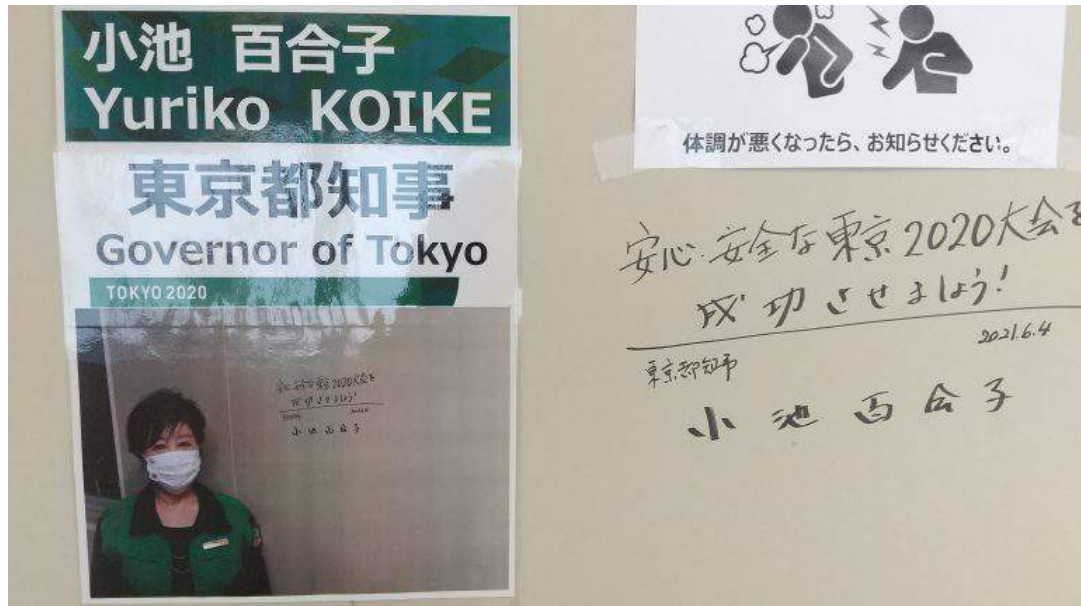 小池 百合子
Yuriko KOIKE
東京都知事
Governor of Tokyo
TOKYO 2020
安心・安全な東京2020大会を
成功させましょう!
2021.6.4
東京都知事
小池百合子
体調が悪くなったら、お知らせください。
安心・安全な東京2020大会を
成功させましょう!
2021.6.4
東京都知事
小池百合子